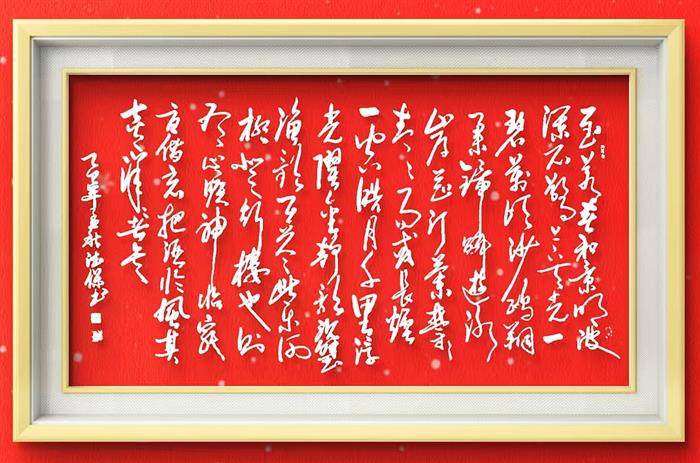 至若春和景明波
澜不惊上下天光一
碧萬顷沙鸥翔
集锦鳞遊泳
岸芷汀蘭郁郁
青青而或長煙
一空皓月千里浮
光躍金静影沉璧
渔歌互答此乐何
极登斯楼也则
有心旷神怡宠
辱偕忘把酒临風其
喜洋洋者矣
年